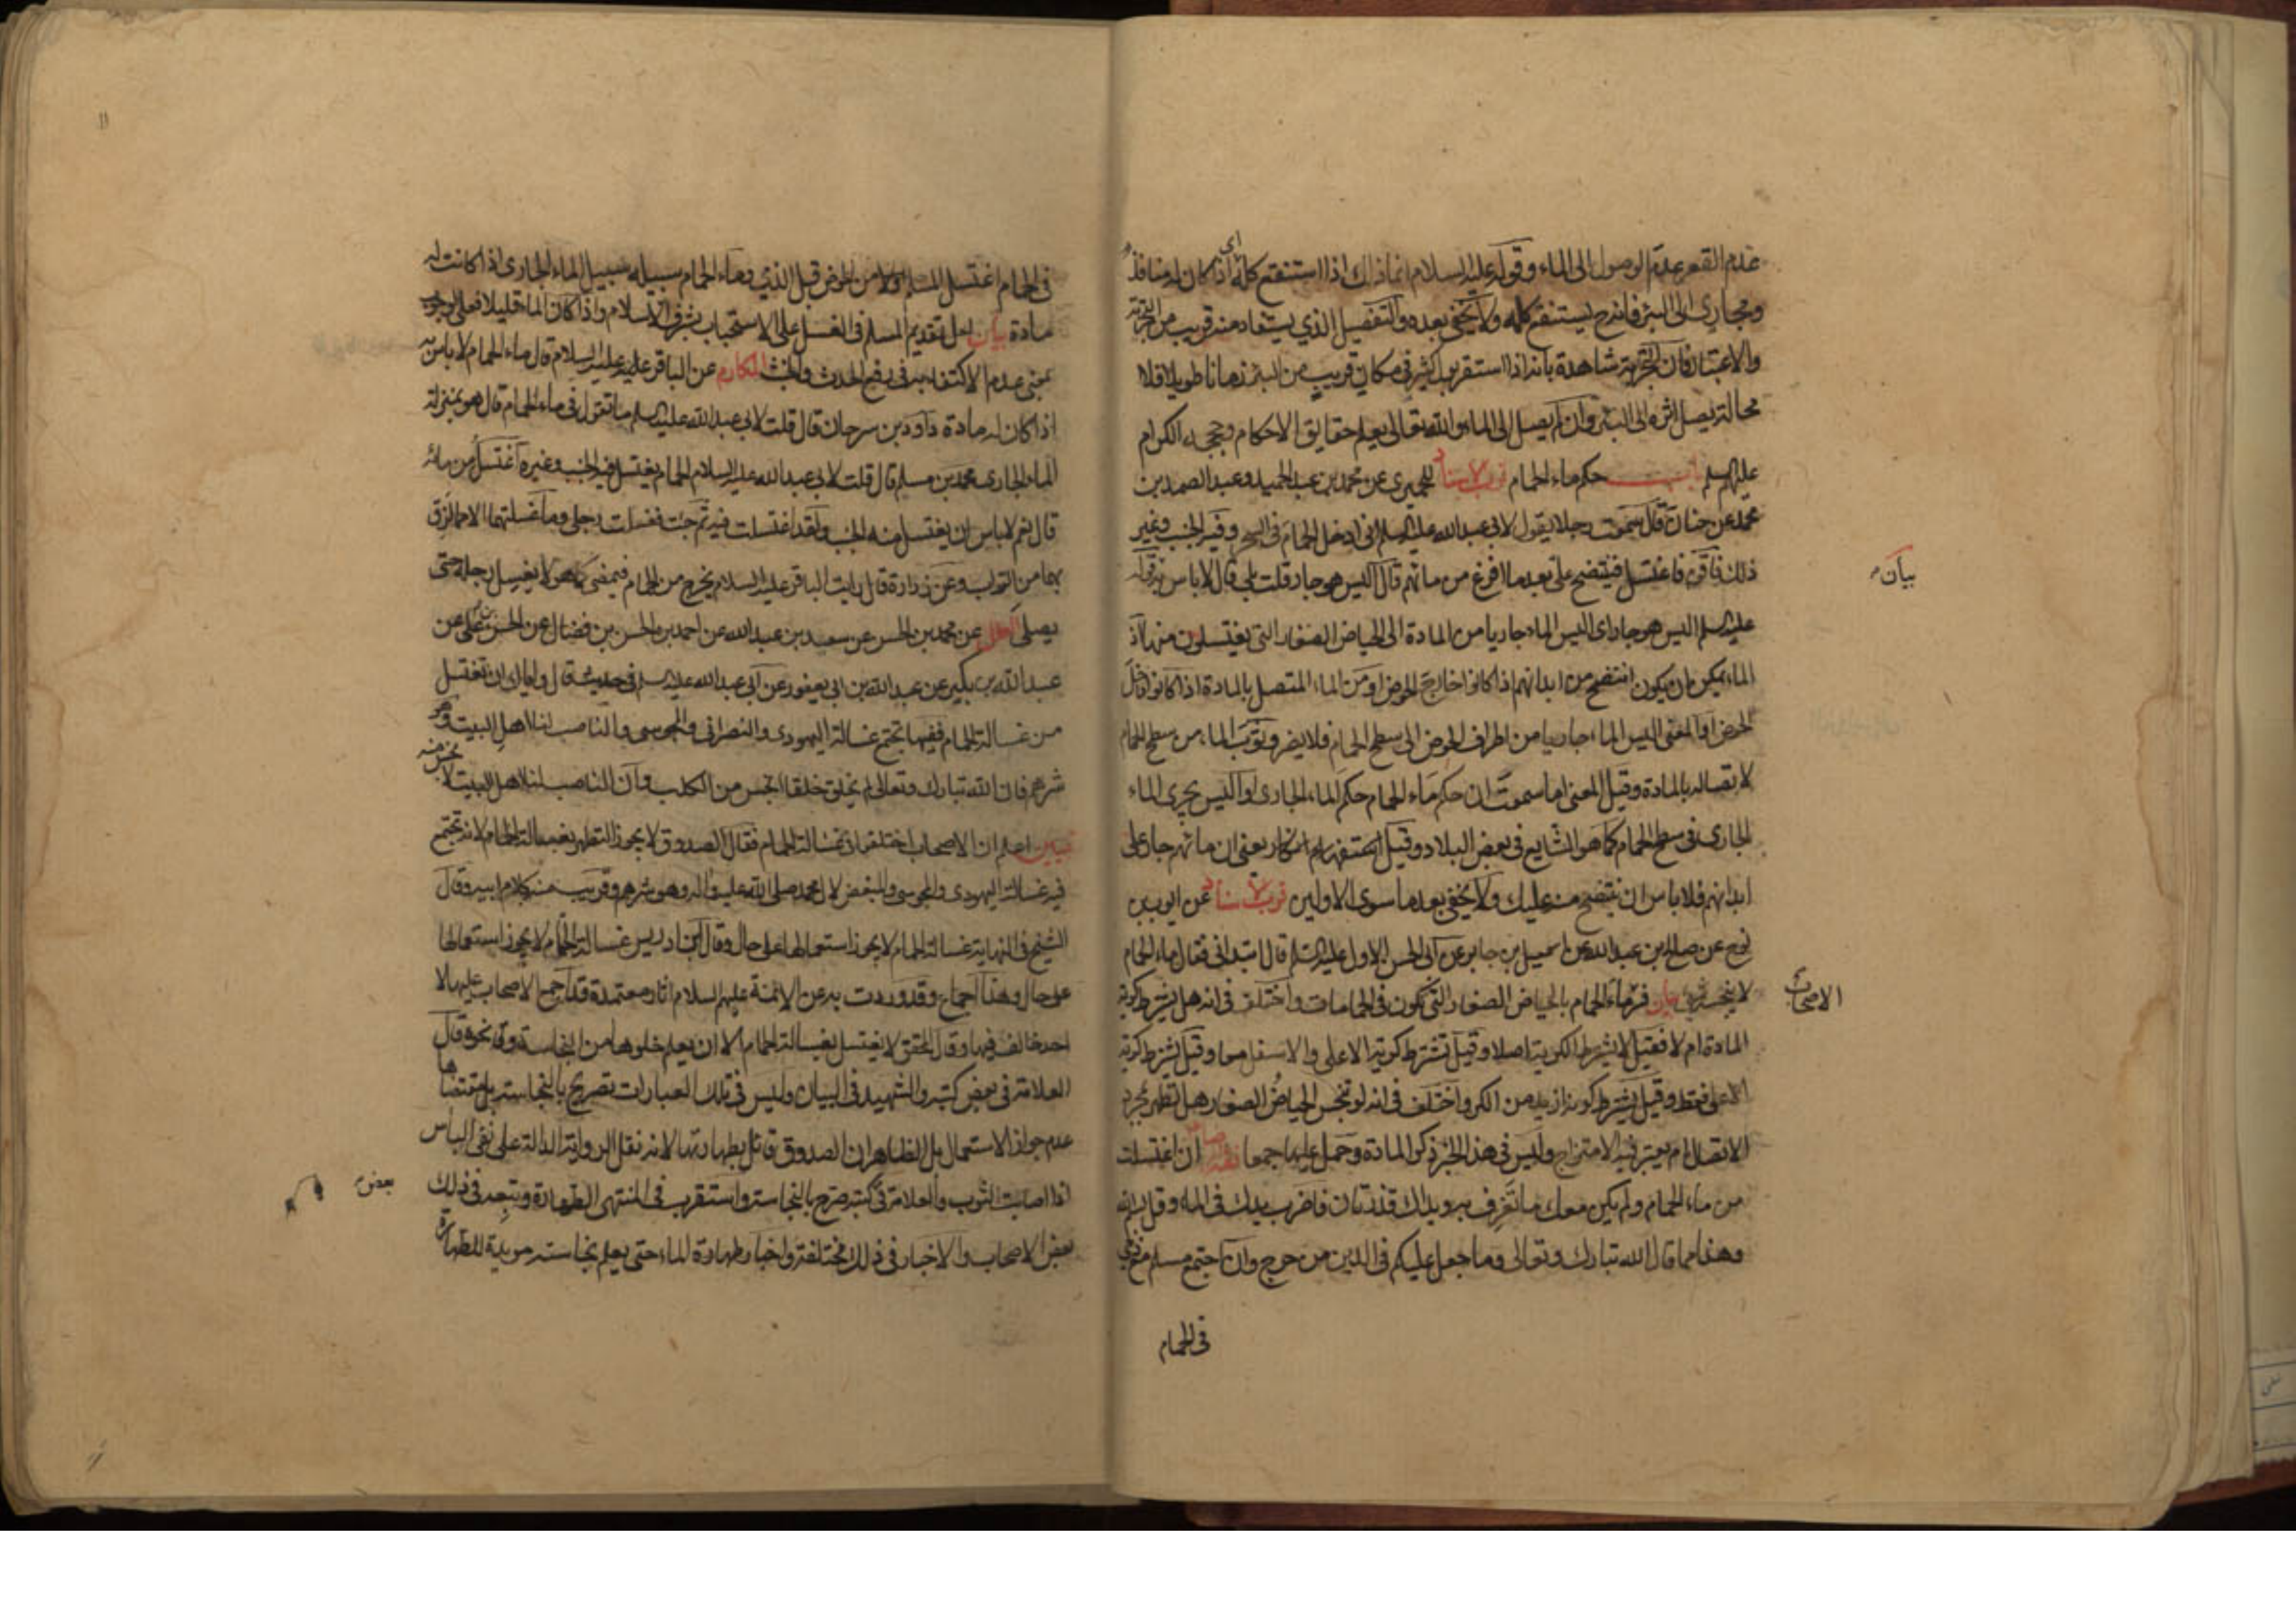 عدم القعر عدم الوصول الى الماء وقوله عليه السلام انما ذاك اذا استنقع كله اى اذا كان له منافذ
ومجارى الى البئر فانه ح يستنقع كله ولا يخفى بعده والتفصيل الذي يستفاد منه قريب من التجربة
والاعتبار فان التجربة شاهدة بانه اذا استقر بول كثير فى مكان قريب من البئر زمانا طويلا فلا
محالة يصل اثره الى البئر وان لم يصل الى الماء والله تعالى يعلم حقايق الاحكام وحججه الكرام
عليهم السلم باب حكم ماء الحمام قرب الاسناد للحميرى عن محمد بن عبد الحميد وعبد الصمد بن
محمد عن حنان قال سمعت رجلا يقول لابى عبد الله عليه السلم انى ادخل الحمام فى السحر وفيه الجنب وغير
ذلك فاقوم فاغتسل فينتضح على بعد ما افرغ من مائهم قال اليس هو جار قلت بلى قال لا باس به قوله
بيان
عليه السلم اليس هو جار اى اليس الماء جاريا من المادة الى الحياض الصغار التى يغتسلون منها اذ
الماء يمكن ان يكون انتضح من ابدانهم اذا كانوا خارج الحوض او من الماء المتصل بالمادة اذا كانوا داخل
الحوض او المعنى اليس الماء جاريا من اطراف الحوض الى سطح الحمام فلا يضر وثوب الماء من سطح الحمام
لاتصاله بالمادة وقيل المعنى اما سمعت ان حكم ماء الحمام حكم الماء الجارى او اليس يجرى الماء
الجارى فى سطح الحمام كما هو الشايع فى بعض البلاد وقيل استفهام انكار يعنى ان مائهم جار على
ابدانهم فلا باس ان ينتضح منه عليك ولا يخفى بعد ما سوى الاولين قرب الاسناد عن ايوب بن
نوح عن صالح بن عبد الله عن اسمعيل بن جابر عن ابى الحسن الاول عليه السلم قال ابتدانى فقال ماء الحمام
لا ينجسه شئ بيان فسر ماء الحمام بالحياض الصغار التى تكون فى الحمامات واختلف فى انه هل يشترط كرية
الاصحاب
المادة ام لا فقيل لا يشترط الكرية اصلا وقيل تشترط كرية الاعلى والاسفل معا وقيل يشترط كرية
الاعلى فقط وقيل يشترط كونه ازيد من الكر واختلف فى انه لو تنجس الحياض الصغار هل تطهر بمجرد
الاتصال ام يعتبر فيه الامتزاج وليس فى هذا الخبر ذكر المادة وحمل عليها جمعا فقه الرضا ان اغتسلت
من ماء الحمام ولم يكن معك ما تغرف به ويداك قذرتان فاضرب يدك فى الماء وقل بسم الله
وهذا مما قال الله تبارك وتعالى وما جعل عليكم فى الدين من حرج وان اجتمع مسلم مع ذمى
فى الحمام
فى الحمام اغتسل المسلم اولا من الحوض قبل الذمي وماء الحمام سبيله سبيل الماء الجارى اذا كانت له
مادة بيان لعل تقديم المسلم فى الغسل على الاستحباب لشرف الاسلام واذا كان الماء قليلا فعلى الوجوب
بمعنى عدم الاكتفاء به فى رفع الحدث والخبث المكارم عن الباقر عليه السلام قال ماء الحمام لا باس به
اذا كان له مادة داود بن سرحان قال قلت لابى عبد الله عليه السلم ما تقول فى ماء الحمام قال هو بمنزلة
الماء الجارى محمد بن مسلم قال قلت لابى عبد الله عليه السلام الحمام يغتسل فيه الجنب وغيره اغتسل من مائه
قال نعم لا باس ان يغتسل منه الجنب ولقد اغتسلت فيه ثم جئت فغسلت رجلى وما غسلتهما الا مما لزق
بهما من التراب وعن زرارة قال رايت الباقر عليه السلام يخرج من الحمام فيمضى كما هو لا يغسل رجله حتى
يصلى العلل عن محمد بن الحسن عن سعد بن عبد الله عن احمد بن الحسن بن فضال عن الحسن بن على عن
عبد الله بن بكير عن عبد الله بن ابى يعفور عن ابى عبد الله عليه السلم فى حديث قال واياك ان تغتسل
من غسالة الحمام ففيها تجتمع غسالة اليهودى والنصرانى والمجوسى والناصب لنا اهل البيت وهو
شرهم فان الله تبارك وتعالى لم يخلق خلقا انجس من الكلب وان الناصب لنا اهل البيت لا نجس منه
تبيين اعلم ان الاصحاب اختلفوا فى غسالة الحمام فقال الصدوق لا يجوز التطهر بغسالة الحمام لانه تجتمع
فيه غسالة اليهودى والمجوسى والمبغض لال محمد صلى الله عليه واله وهو شرهم وقريب منه كلام ابيه وقال
الشيخ فى النهاية غسالة الحمام لا يجوز استعمالها على حال وقال ابن ادريس غسالة الحمام لا يجوز استعمالها
على حال وهذا اجماع وقد وردت به عن الائمة عليهم السلام اثار معتمدة قد اجمع الاصحاب عليها لا
احد خالف فيها وقال المحقق لا يغتسل بغسالة الحمام الا ان يعلم خلوها من النجاسة ونحوه قال
العلامة فى بعض كتبه والشهيد فى البيان وليس فى تلك العبارات تصريح بالنجاسة بل مقتضاها
عدم جواز الاستعمال بل الظاهر ان الصدوق قائل بطهارتها لانه نقل الرواية الدالة على نفى الباس
اذا اصابت الثوب والعلامة فى كتبه صرح بالنجاسة واستقرب فى المنتهى الطهارة وتبعه فى ذلك
بعض
بعض الاصحاب والاخبار فى ذلك مختلفة واخبار طهارة الماء حتى يعلم نجاسته مويدة للطهارة